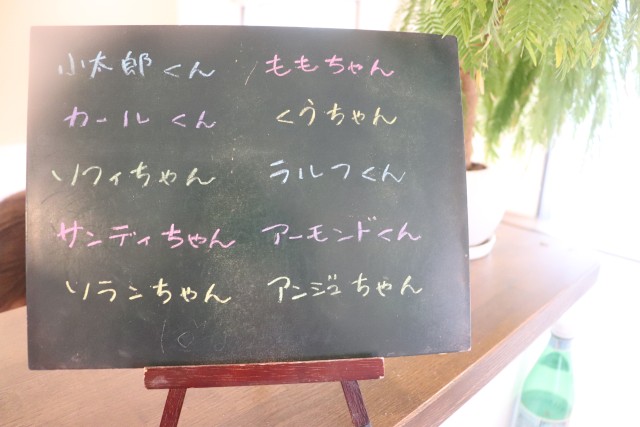 小太郎くん ももちゃん
カールくん くうちゃん
ソフィちゃん ラルフくん
サンディちゃん アーモンドくん
ソランちゃん アンジュちゃん